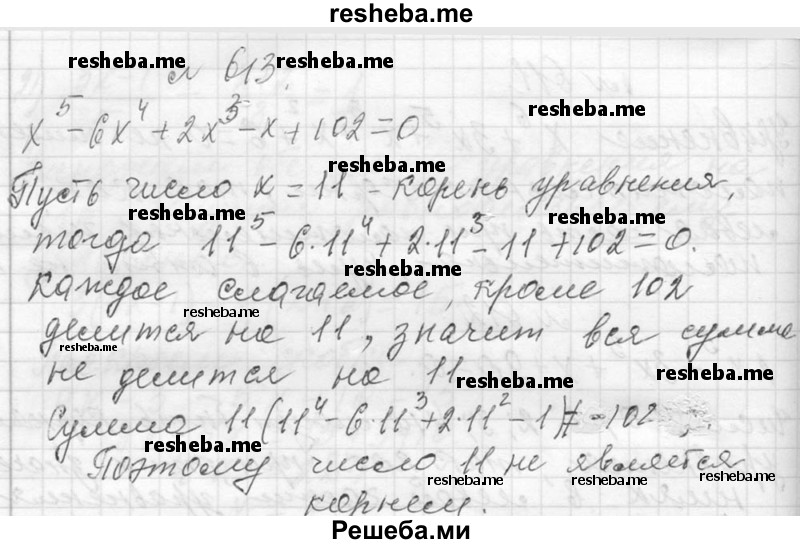 resheba.me
resheba.me № 613. resheba.me
x⁵ - 6x⁴ + 2x³ - x + 102 = 0 resheba.me
resheba.me
Пусть число x = 11 - корень уравнения,
resheba.me resheba.me
тогда 11⁵ - 6·11⁴ + 2·11³ - 11 + 102 = 0.
resheba.me
Каждое слагаемое, кроме 102
resheba.me
делится на 11, значит вся сумма
resheba.me
не делится на 11 resheba.me resheba.me
Сумма 11(11⁴ - 6·11³ + 2·11² - 1) ≠ -102
resheba.me
Поэтому число 11 не является
resheba.me resheba.me
корнем.
Решеба.ми